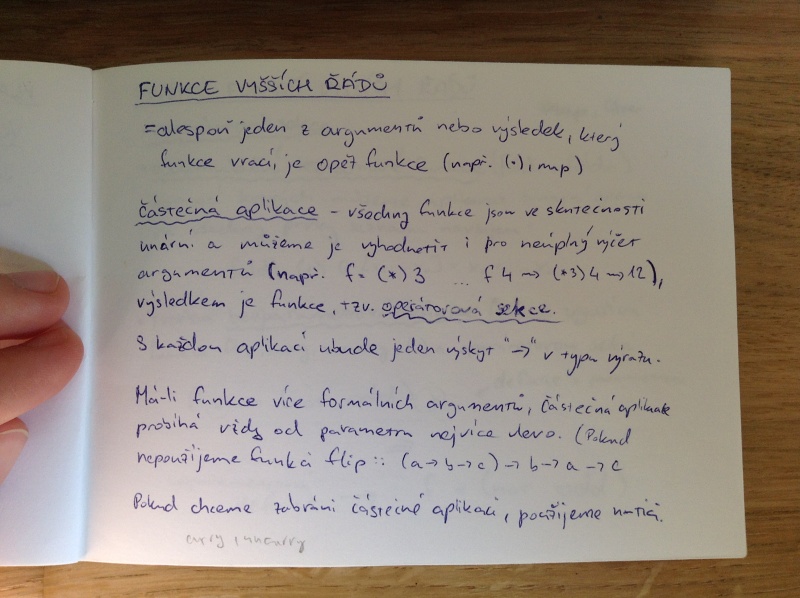 FUNKCE VYŠŠÍCH ŘÁDŮ
= alespoň jeden z argumentů nebo výsledek, který
funkce vrací, je opět funkce (např. (.), map)
částečná aplikace - všechny funkce jsou ve skutečnosti
unární a můžeme je vyhodnotit i pro neúplný výčet
argumentů (např. f = (*) 3 ... f 4 ~> (*3) 4 ~> 12),
výsledkem je funkce, tzv. operátorová sekce.
S každou aplikací ubude jeden výskyt "->" v typu výrazu.
Má-li funkce více formálních argumentů, částečná aplikace
probíhá vždy od parametru nejvíce vlevo. (Pokud
nepoužijeme funkci flip :: (a -> b -> c) -> b -> a -> c
Pokud chceme zabránit částečné aplikaci, použijeme n-tici.
curry, uncurry